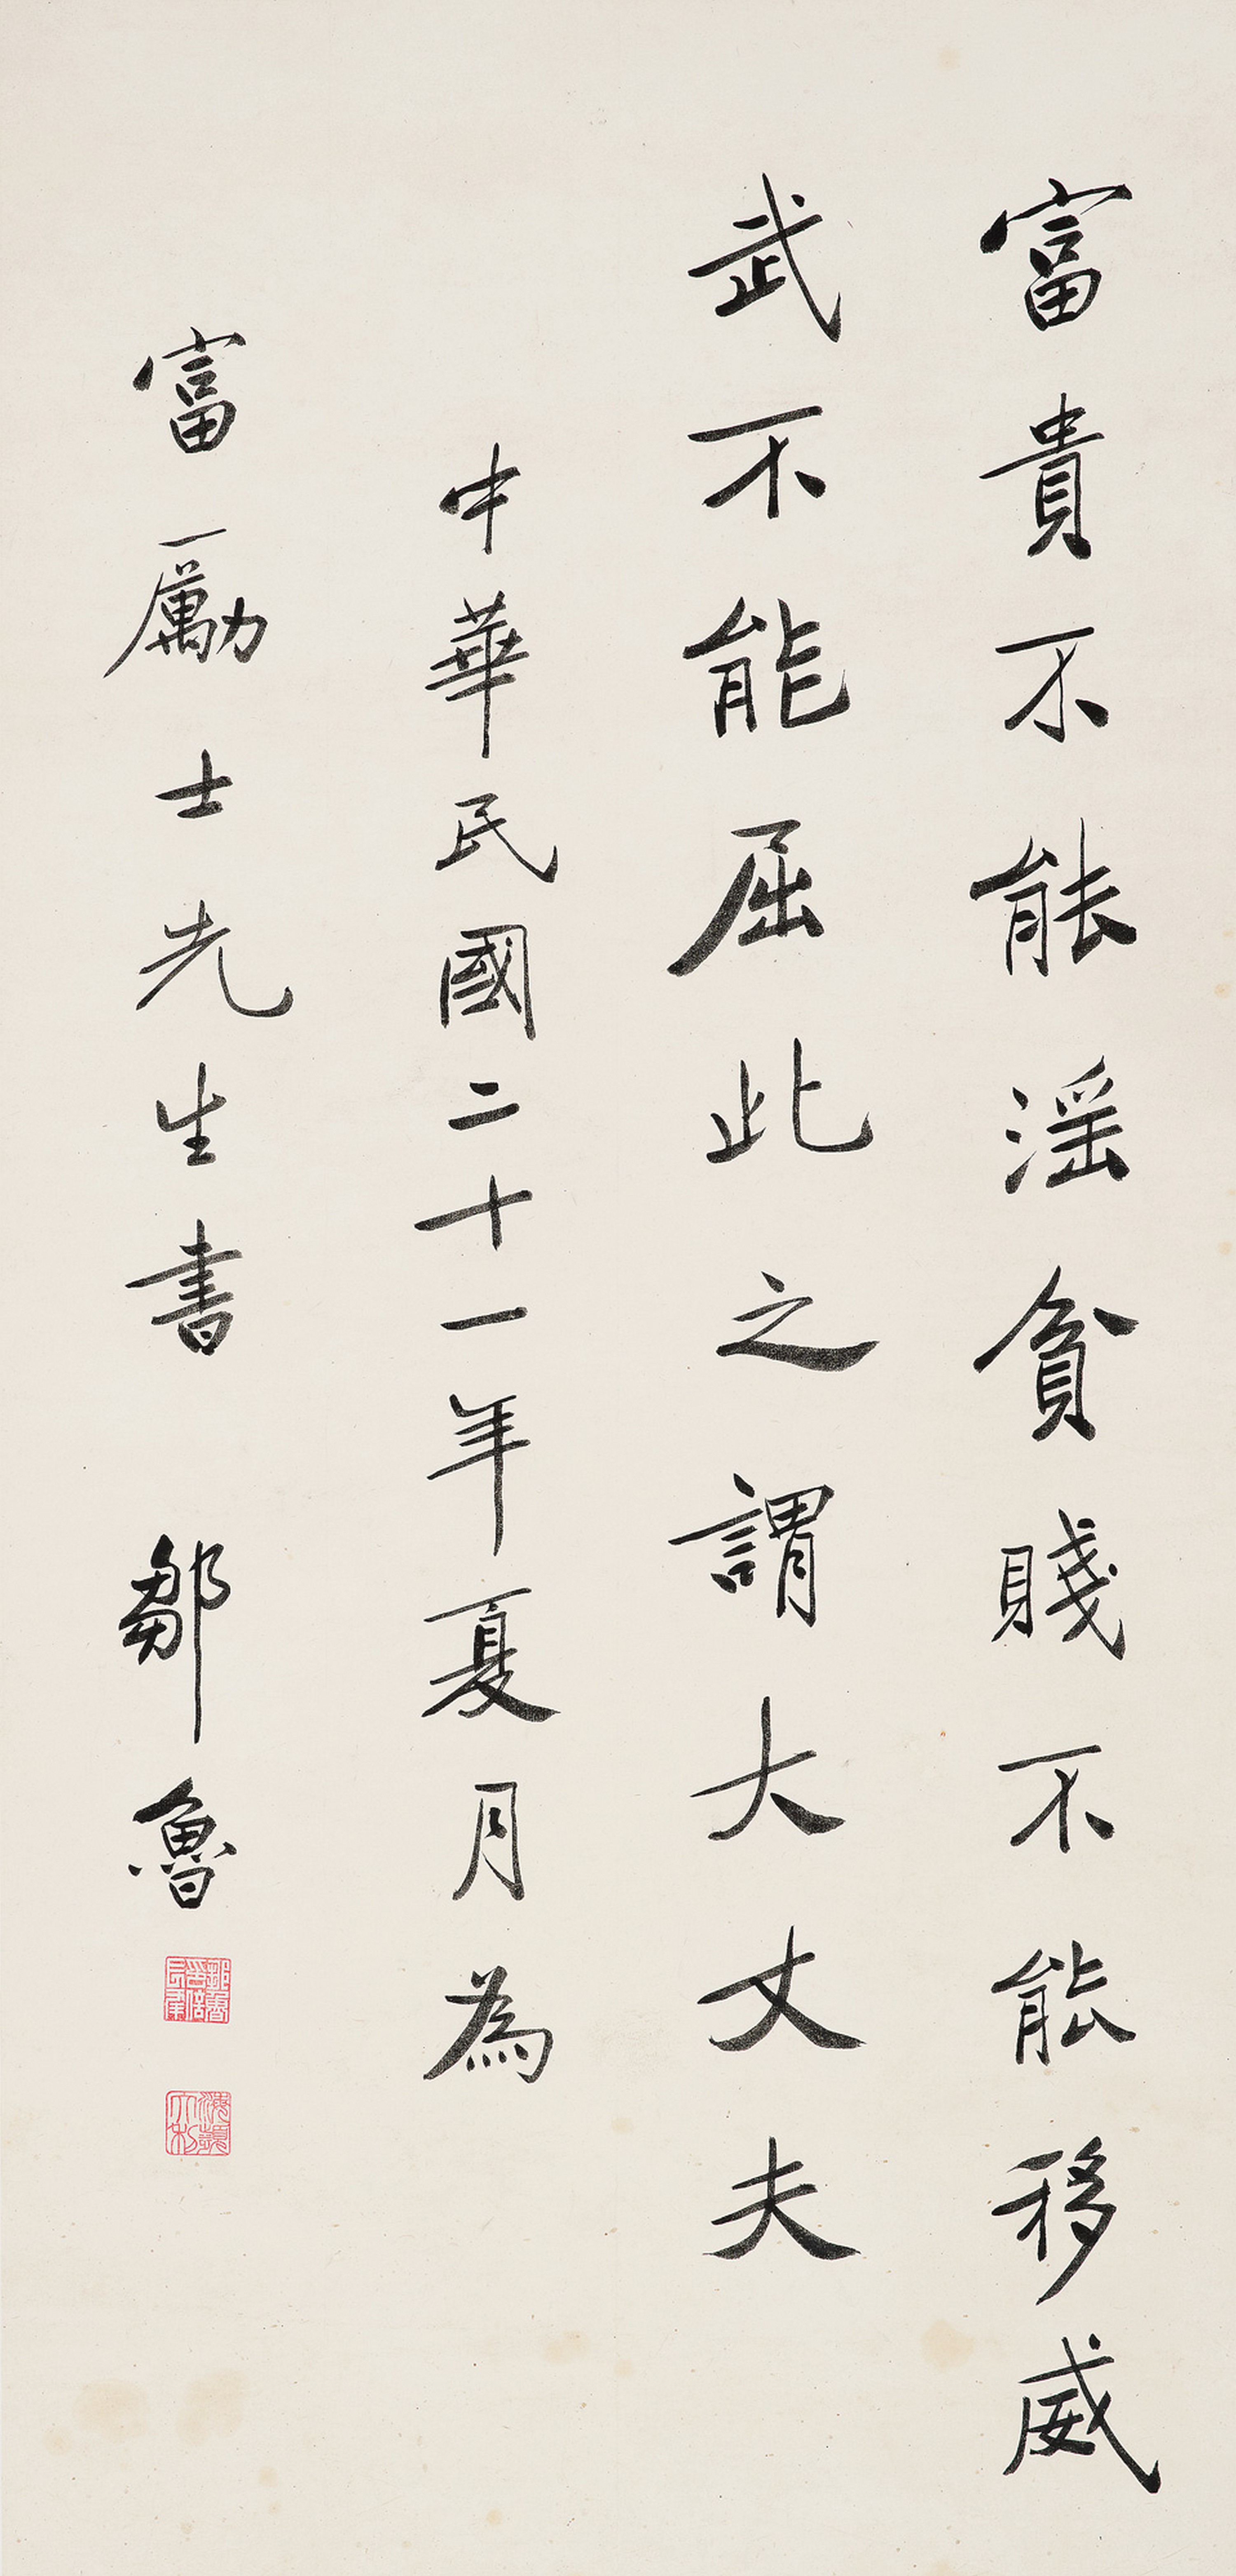 富貴不能淫貧賤不能移威
武不能屈此之謂大丈夫
中華民國二十一年夏月為
富勵士先生書 鄒魯